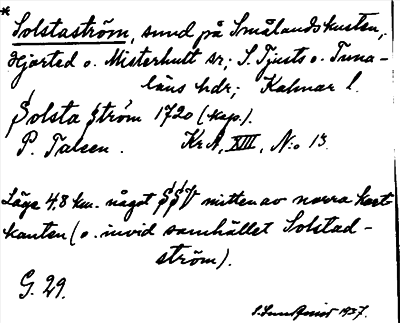 * Solstaström, sund på Smålandskusten,
Hjorted o. Misterhult sr; S. Tjusts o. Tuna-
läns hdr; Kalmar l.
Solsta Ström 1720 (kop.).
P. Talsen. KrA, XIII, N:o 13.
Läge 48 km. något SSV mitten av norra kart-
kanten (o. invid samhället Solstad-
ström).
G. 29.
1927.